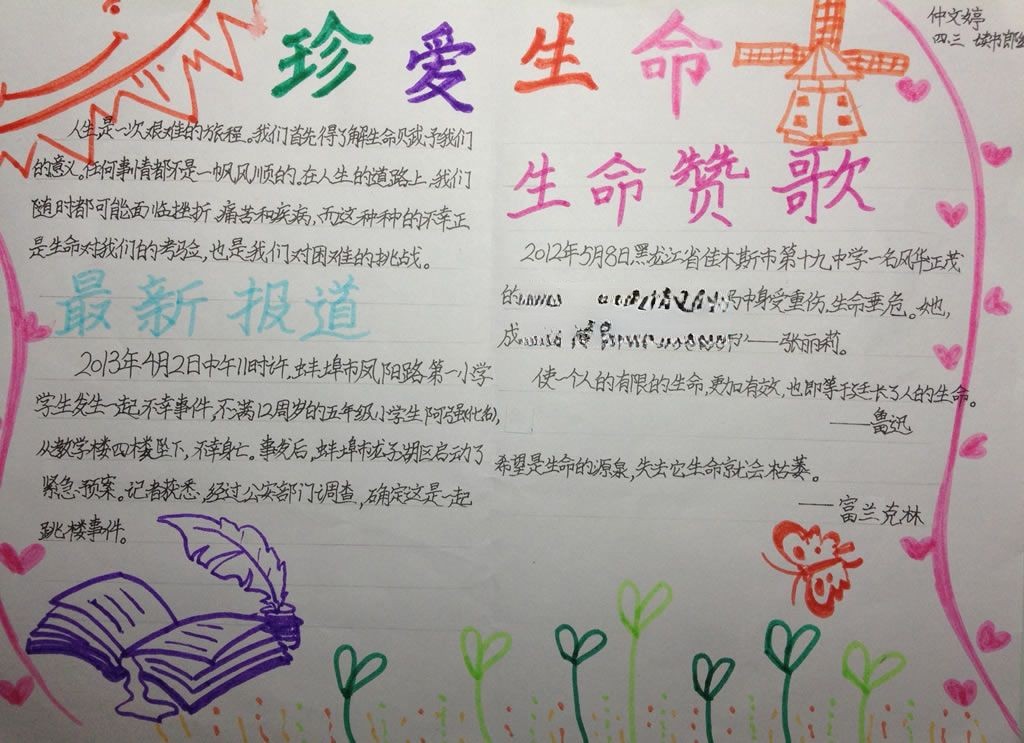 珍爱生命
仲文婷
四.三 读书郎
人生是一次艰难的旅程。我们首先得了解生命赋予我们
的意义。任何事情都不是一帆风顺的。在人生的道路上,我们
随时都可能面临挫折、痛苦和疾病,而这种种的不幸正
是生命对我们的考验,也是我们对困难的挑战。
最新报道
2013年4月2日中午11时许,蚌埠市凤阳路第一小学
学生发生一起不幸事件,不满12周岁的五年级小学生阿强(化名),
从教学楼四楼坠下,不幸身亡。事发后,蚌埠市龙子湖区启动了
紧急预案。记者获悉,经过公安部门调查,确定这是一起
跳楼事件。
生命赞歌
2012年5月8日,黑龙江省佳木斯市第十九中学一名风华正茂
的 中身受重伤,生命垂危。她,
成 ——张丽莉。
使一个人的有限的生命,更加有效,也即等于延长了人的生命。
——鲁迅
希望是生命的源泉,失去它生命就会枯萎。
——富兰克林